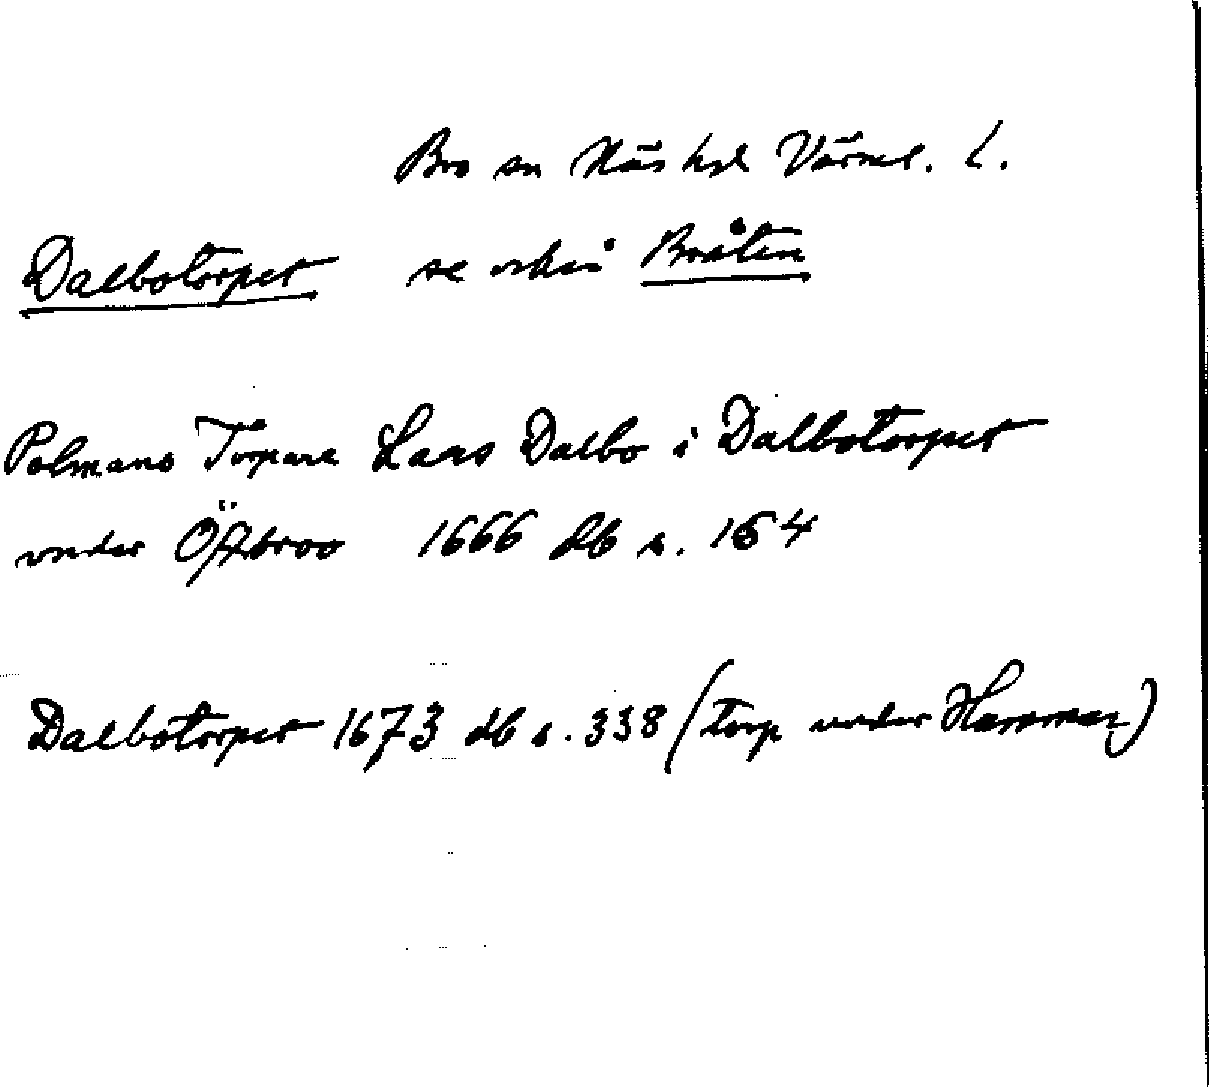 Bro sn Näs hd Värml. l.
Dalbotorpet se också Bråten
Torpare Lars Dalbo i Dalbotorpet
under Öffbroo 1666 db s. 164
Dalbotorpet 1673 db s. 338 (torp under Hammar)